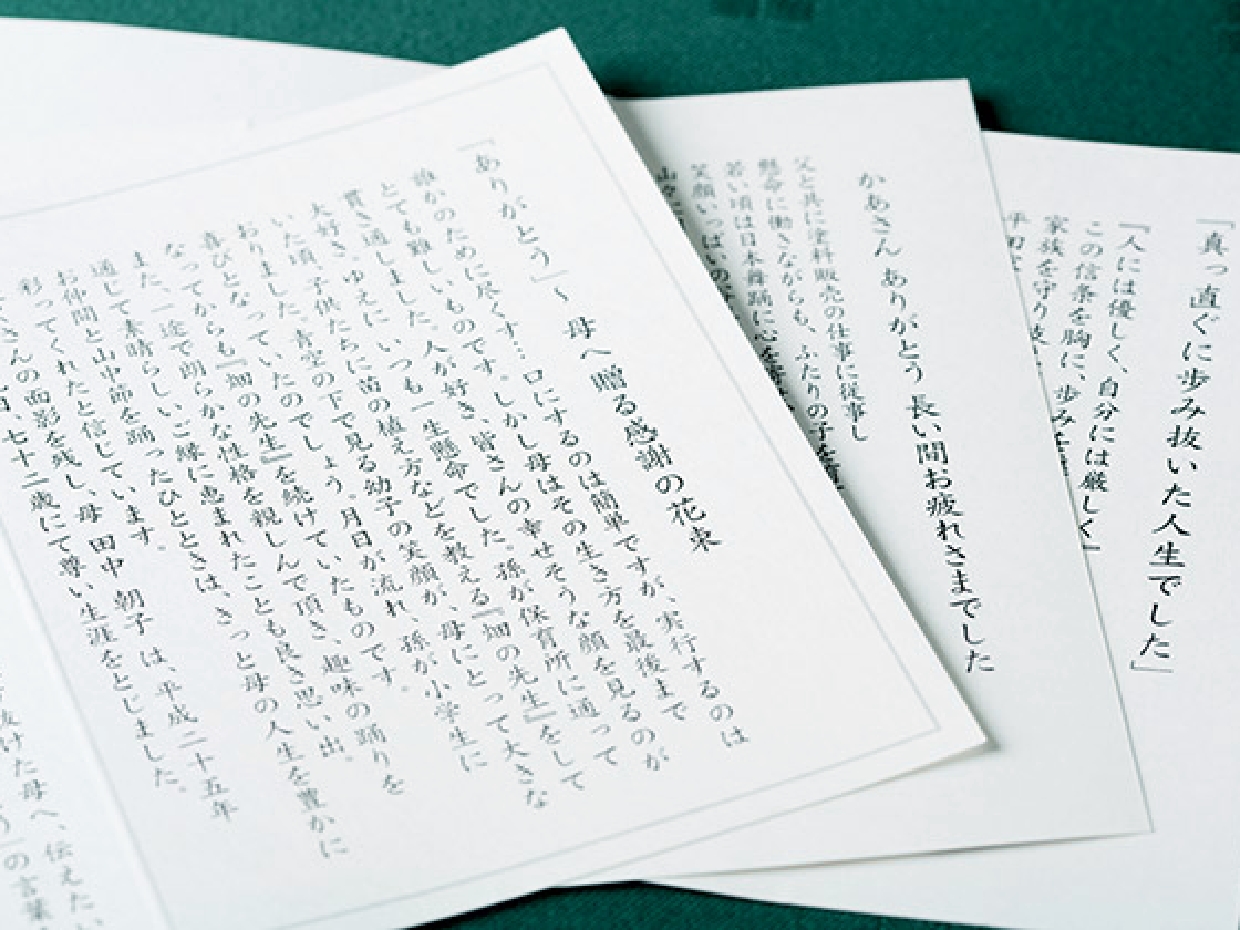 「真っ直ぐに歩み抜いた人生でした」
『人には優しく、自分には厳しく』
この信条を胸に、歩み
家族を守り
かあさん ありがとう 長い間お疲れさまでした
父と共に塗料販売の仕事に従事し
懸命に働きながらも、ふたりの子を
若い頃は日本舞踊に心を
笑顔いっぱいの
「ありがとう」～母へ贈る感謝の花束
誰かのために尽くす…口にするのは簡単ですが、実行するのは
とても難しいものです。しかし母はその生き方を最後まで
貫き通しました。人が好き、皆さんの幸せそうな顔を見るのが
大好き。ゆえに、いつも一生懸命でした。孫が保育所に通って
いた頃、子供たちに苗の植え方などを教える『畑の先生』をして
おりました。青空の下で見る幼子の笑顔が、母にとって大きな
喜びとなっていたのでしょう。月日が流れ、孫が小学生に
なってからも『畑の先生』を続けていたものです。
また、一途で朗らかな性格を親しんで頂き、趣味の踊りを
通じて素晴らしいご縁に恵まれたことも良き思い出。
お仲間と山中節を踊ったひとときは、きっと母の人生を豊かに
彩ってくれたと信じています。
さんの面影を残し、母 田中 朝子 は、平成二十五年
日、七十二歳にて尊い生涯をとじました。
抜けた母へ、伝えたい
の言葉